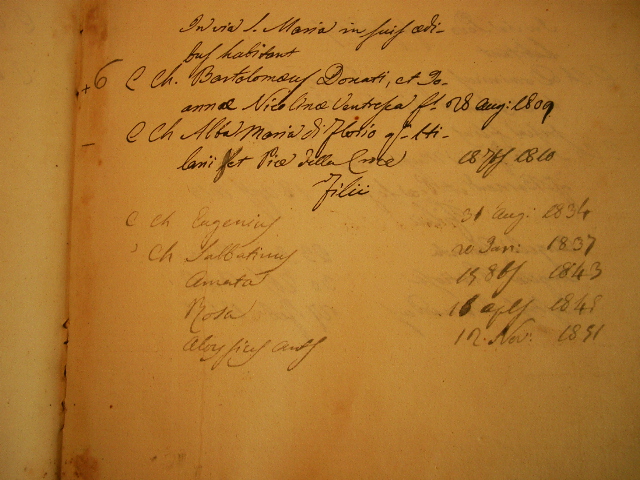 In via S. Maria in suis ædi-
bus habitant
+6 C Ch. Bartolomæus Donati, et Jo-
annæ Nicolinæ Ventresca f. 28 Aug: 1809
- C Ch Alba Maria di Florio q.
lani et Piæ della Croce 1810
Filii
C Ch Eugenius 31 Aug: 1834
Ch Sabbatinus 20 Jan: 1837
Amata 19 8br 1843
Rosa 16
Aloysius Ants 12. Nov: 1851